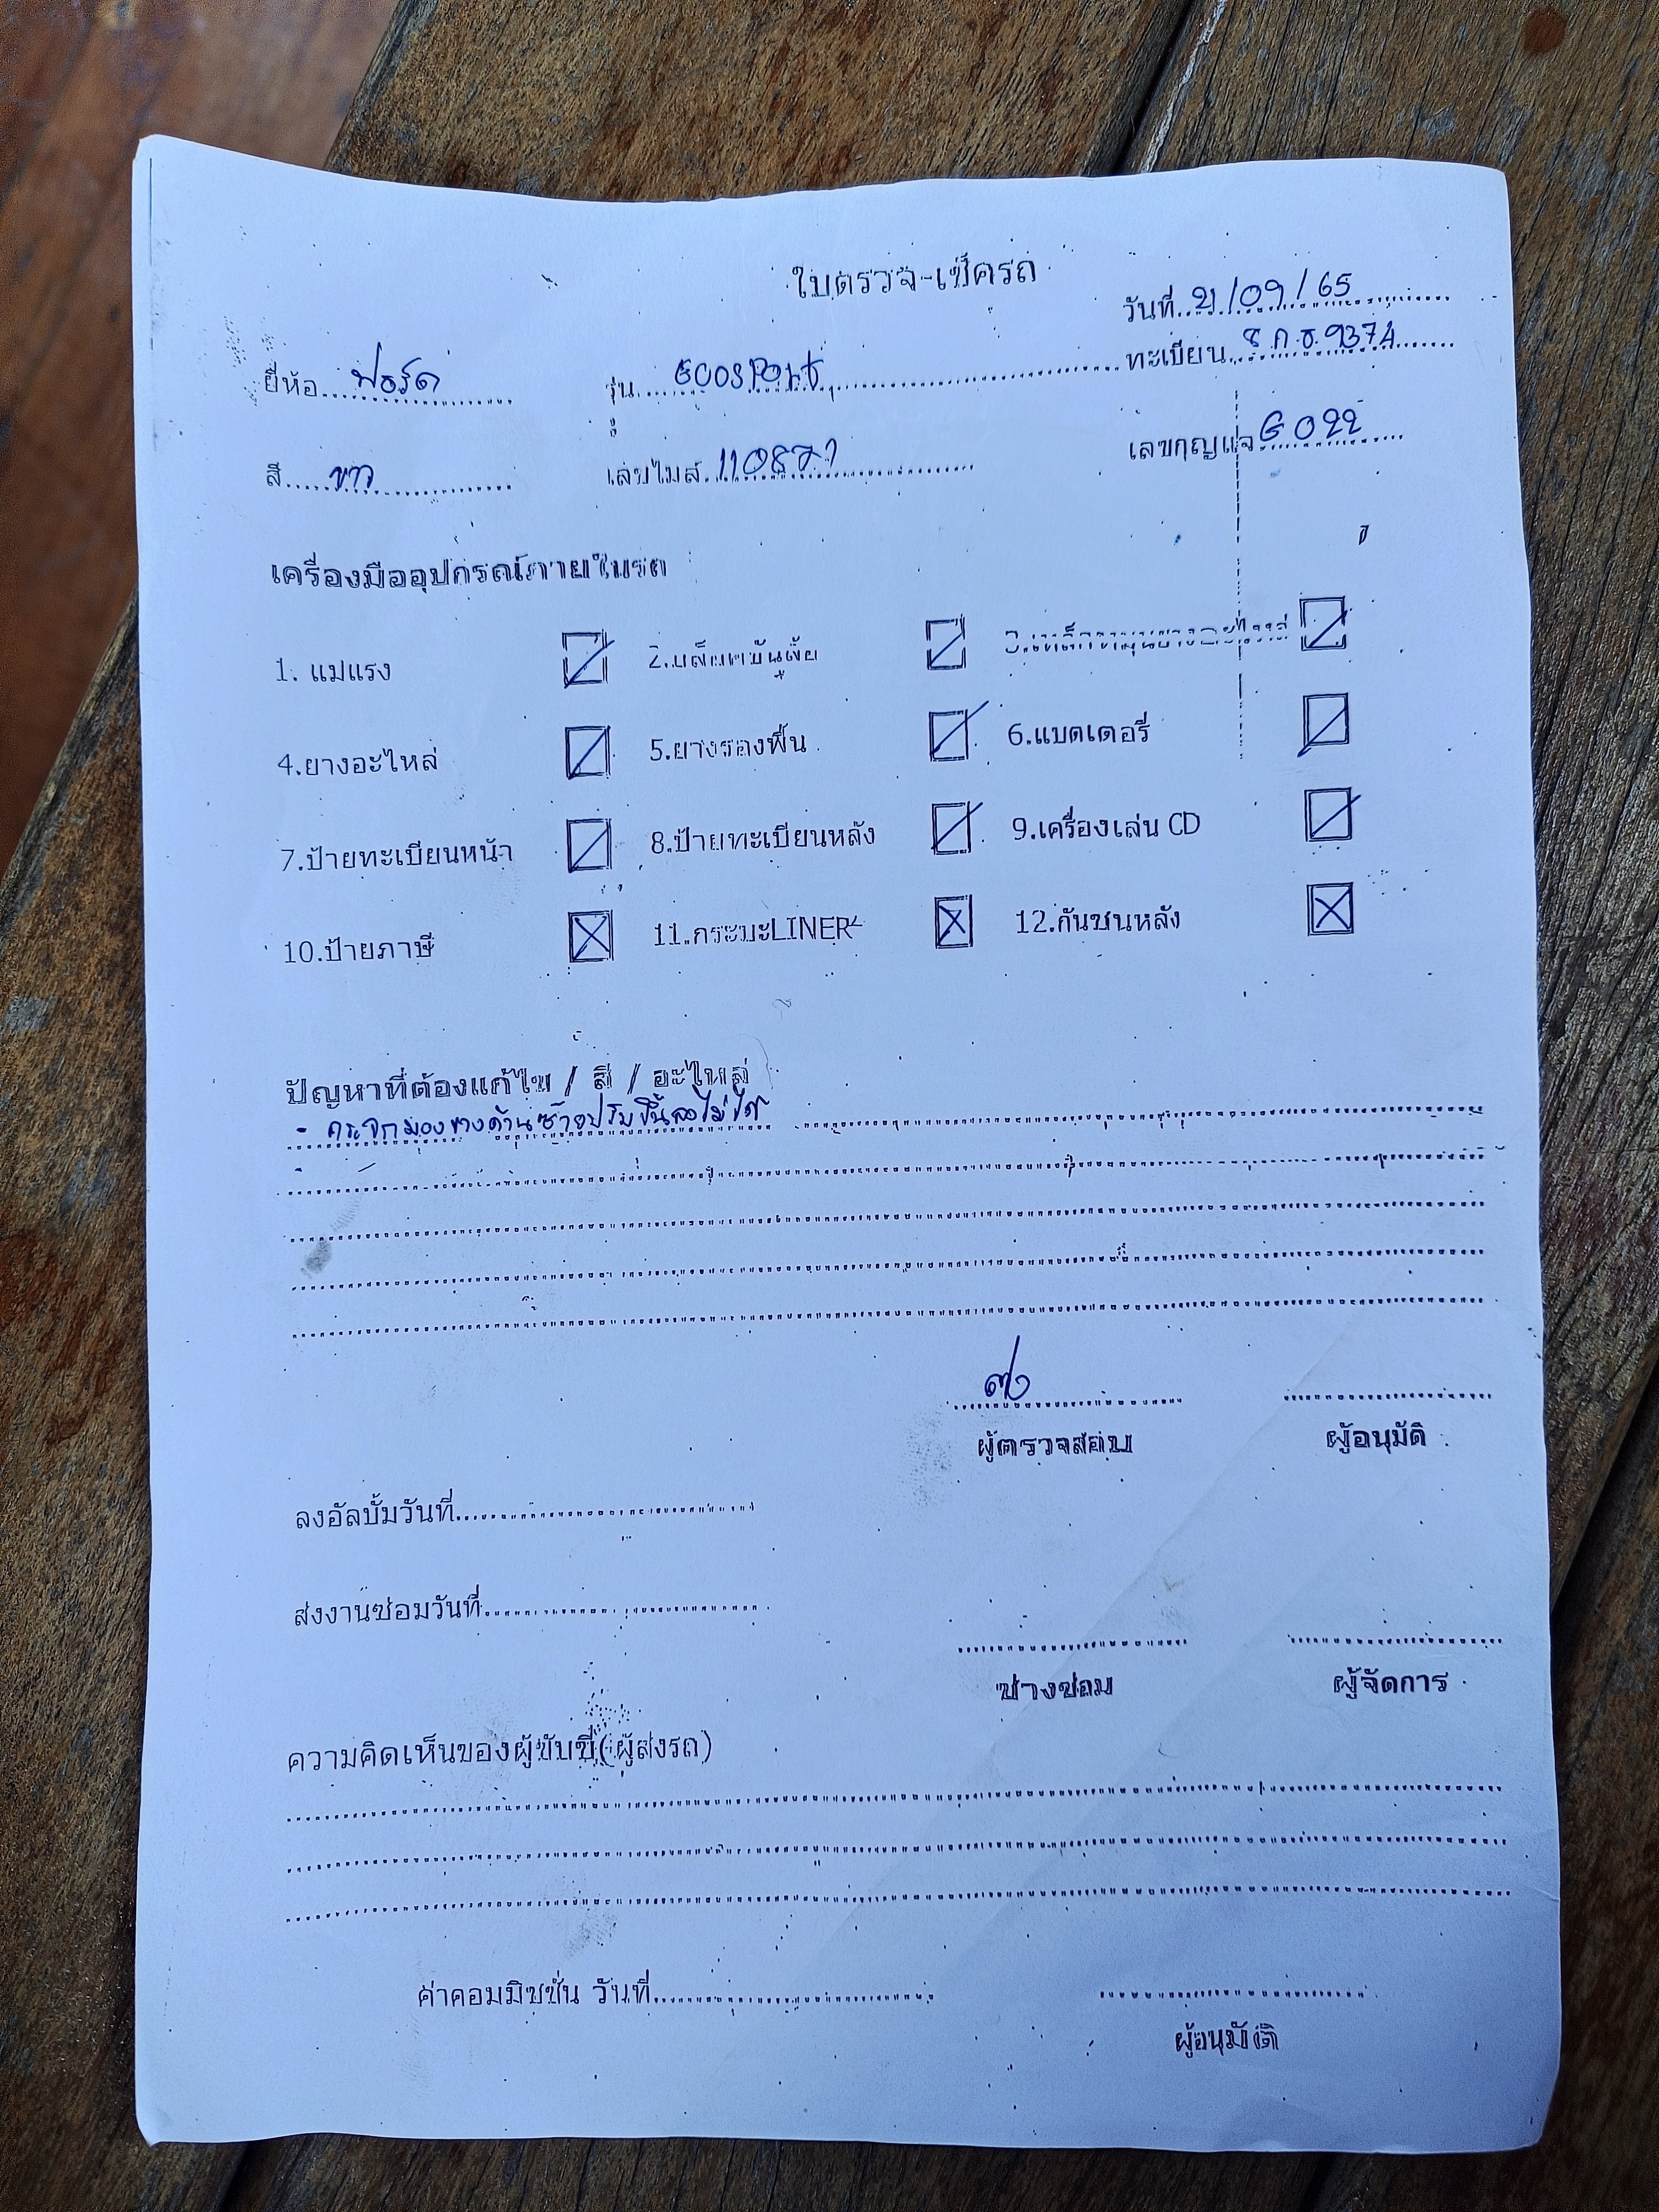 ใบตรวจ-เช็ครถ
วันที่ 21/09/65
ยี่ห้อ ฟอร์ด รุ่น ECOSPORT ทะเบียน 9374
สี ขาว เลขไมล์ 110871 เลขกุญแจ G 022
เครื่องมืออุปกรณ์ภายในรถ
1. แม่แรง 2.บล็อคขันล้อ 3.
4.ยางอะไหล่ 5.ยางรองพื้น 6.แบตเตอรี่
7.ป้ายทะเบียนหน้า 8.ป้ายทะเบียนหลัง 9.เครื่องเล่น CD
10.ป้ายภาษี 11.กระบะLINER 12.กันชนหลัง
ปัญหาที่ต้องแก้ไข / สี / อะไหล่
- กระจกมองข้างด้านซ้ายปรับขึ้นลงไม่ได้
ผู้ตรวจสอบ ผู้อนุมัติ
ลงอัลบั้มวันที่
ส่งงานซ่อมวันที่
ช่างซ่อม ผู้จัดการ
ความคิดเห็นของผู้ขับขี่(ผู้ส่งรถ)
ค่าคอมมิชชั่น วันที่
ผู้อนุมัติ